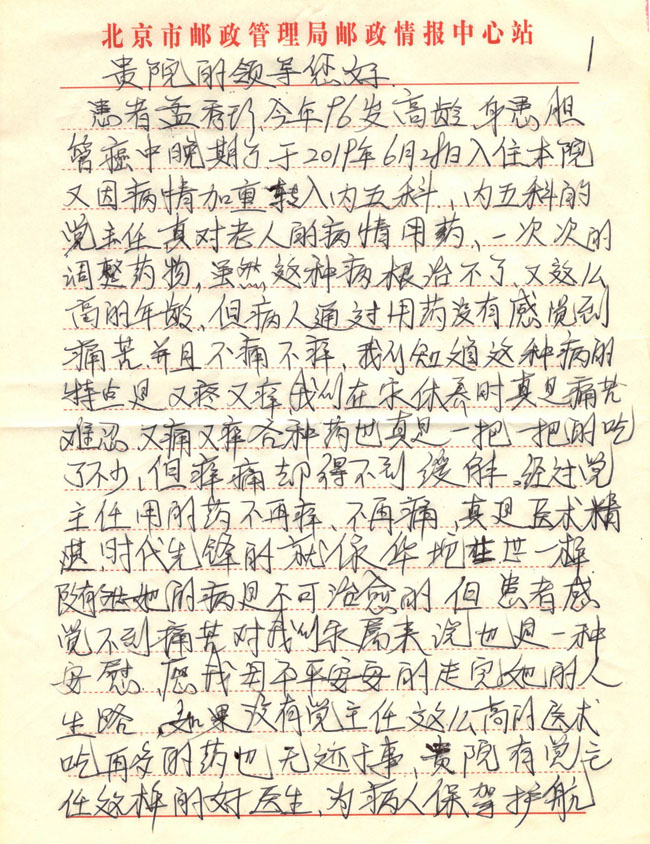 北京市邮政管理局邮政情报中心站
1
贵院的领导您好
患者孟秀珍,今年96岁高龄,身患胆
管癌中晚期了于2019年6月2日入住本院
又因病情加重转入内五科,内五科的
党主任真对老人的病情用药,一次次的
调整药物,虽然这种病根治不了,又这么
高的年龄,但病人通过用药没有感觉到
痛苦,并且不痛不痒,我们知道这种病的
特点是又疼又痒,我们在家休养时真是痛苦
难忍又痛又痒各种药也真是一把一把的吃
了不少,但痒痛却得不到缓解。经过党
主任用的药不再痒,不再痛,真是医术精
湛,时代先锋的就像华佗在世一样
她的病是不可治愈的但患者感
觉不到痛苦对我们家属来说也是一种
安慰,愿我母平平安安的走完她的人
生路,如果没有党主任这么高的医术
吃再多的药也无迹于事,贵院有党主
任这样的好医生,为病人保驾护航